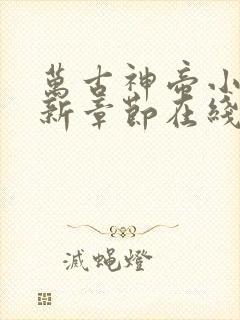 萬古神帝小
新章節在綫
滅蝇燈